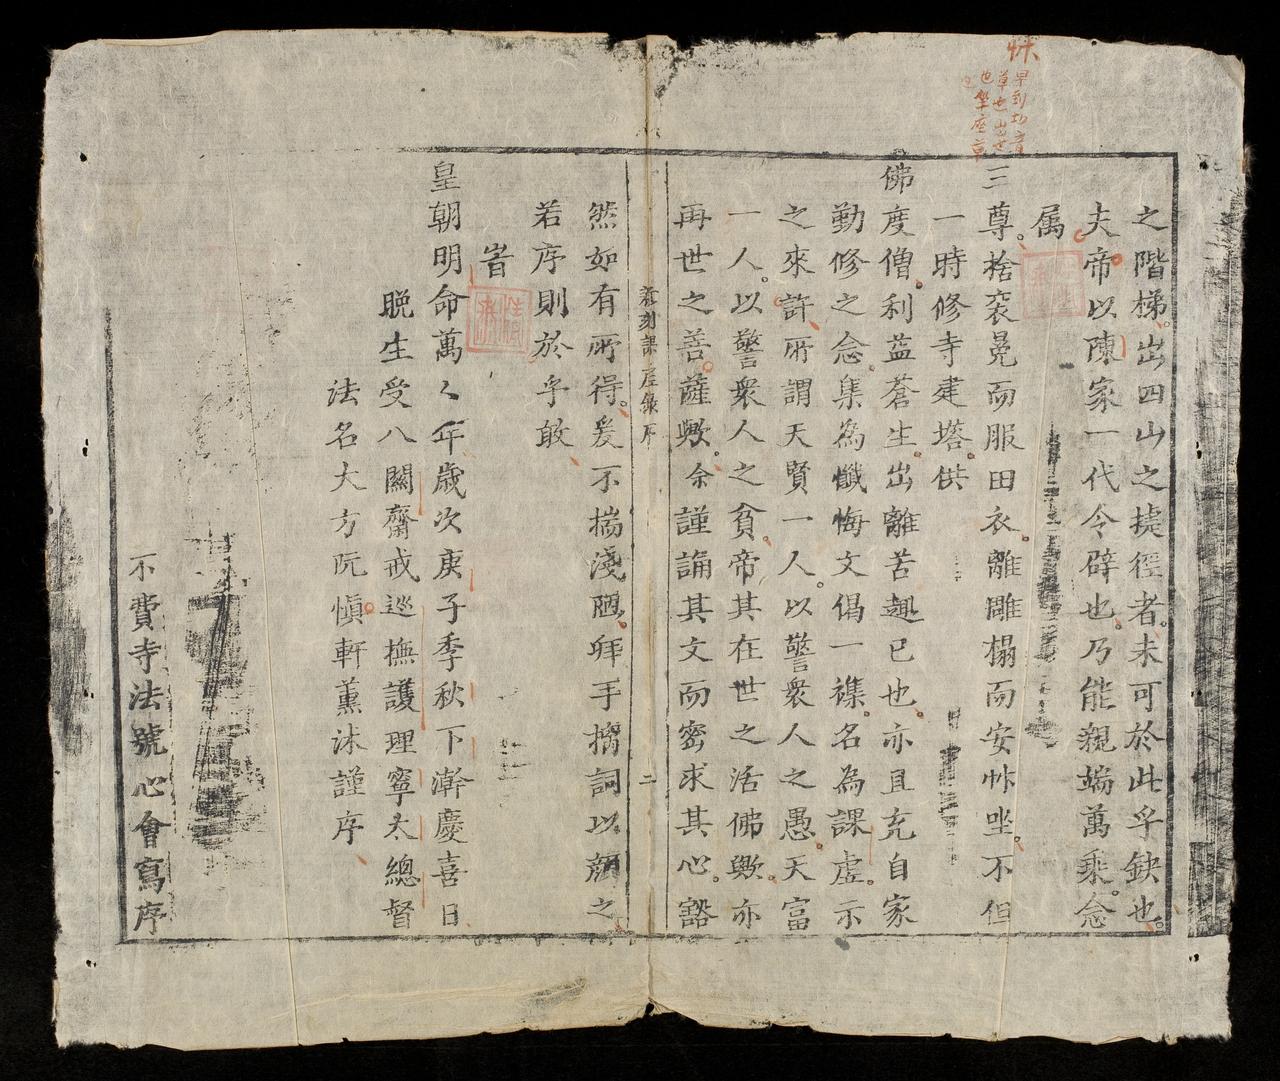 之階梯出四山之㨗徑者未可於此乎缺也
夫帝以陳家一代令辟也乃能親端萬乘念
属
三尊捨衮冕而服田衣離雕榻而安㭊坐不但
一時修寺建塔供
佛度僧利益蒼生出離苦趣已也亦且充自家
勤修之念集為懺悔文偈一襍名為課虛示
之來許所謂天賢一人以警衆人之愚天富
一人以警衆人之貧帝其在世之活佛歟亦
再世之善薩歟余謹誦其文而密求其心豁
新刻課虛錄序
二
然如有所得爰不揣淺陋拜手摛詞以顔之
若序則於乎敢
峕
皇朝明命萬〻年歲次庚子季秋下澣慶喜日
晩生受八關齋戒巡撫護理寧太總督
法名大方阮愼軒薰沐謹序
不費寺法號心會寫序
早到切音
草也出世
也坐座草
也